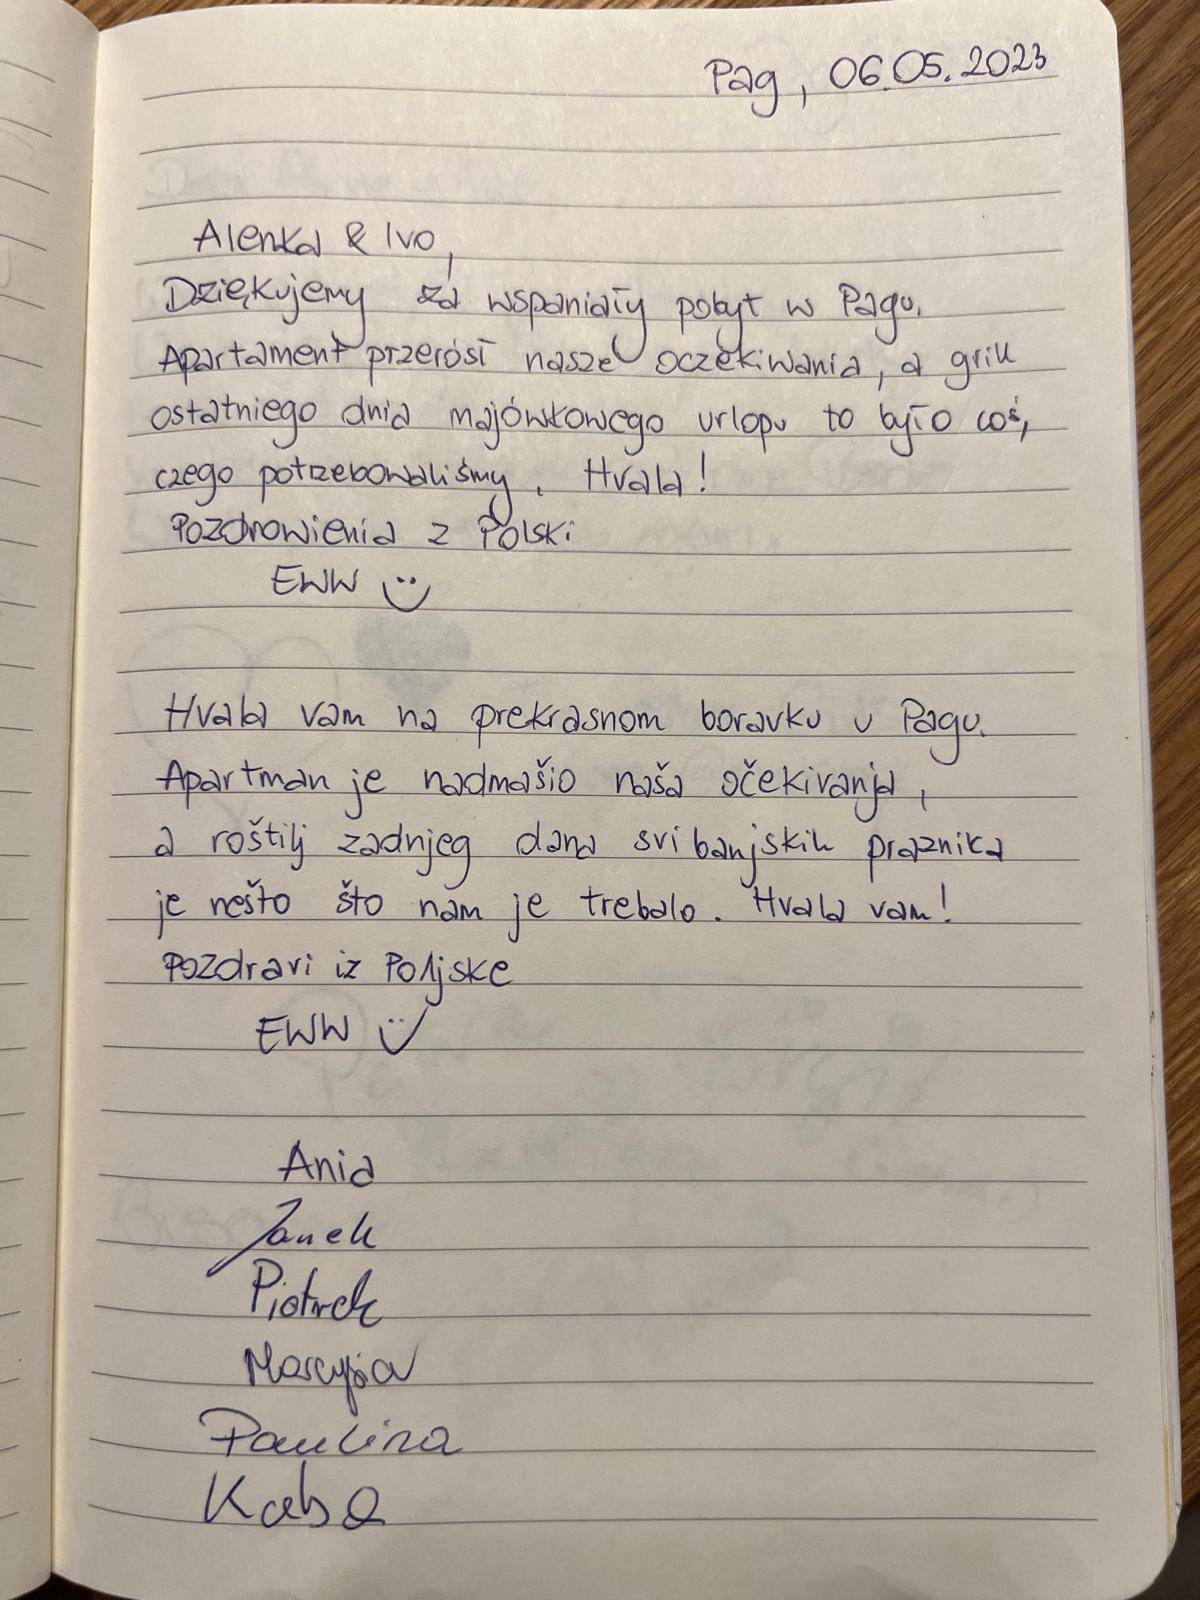 Pag, 06.05.2023
Alenka & Ivo,
Dziękujemy za wspaniały pobyt w Pagu.
Apartament przerósł nasze oczekiwania, a grill
ostatniego dnia majówkowego urlopu to było coś,
czego potrzebowaliśmy. Hvala!
Pozdrowienia z Polski
EWW
Hvala vam na prekrasnom boravku u Pagu.
Apartman je nadmašio naša očekivanja,
a roštilj zadnjeg dana svibanjskih praznika
je nešto što nam je trebalo. Hvala vam!
Pozdravi iz Poljske
EWW
Ania
Janek
Piotrek
Paulina